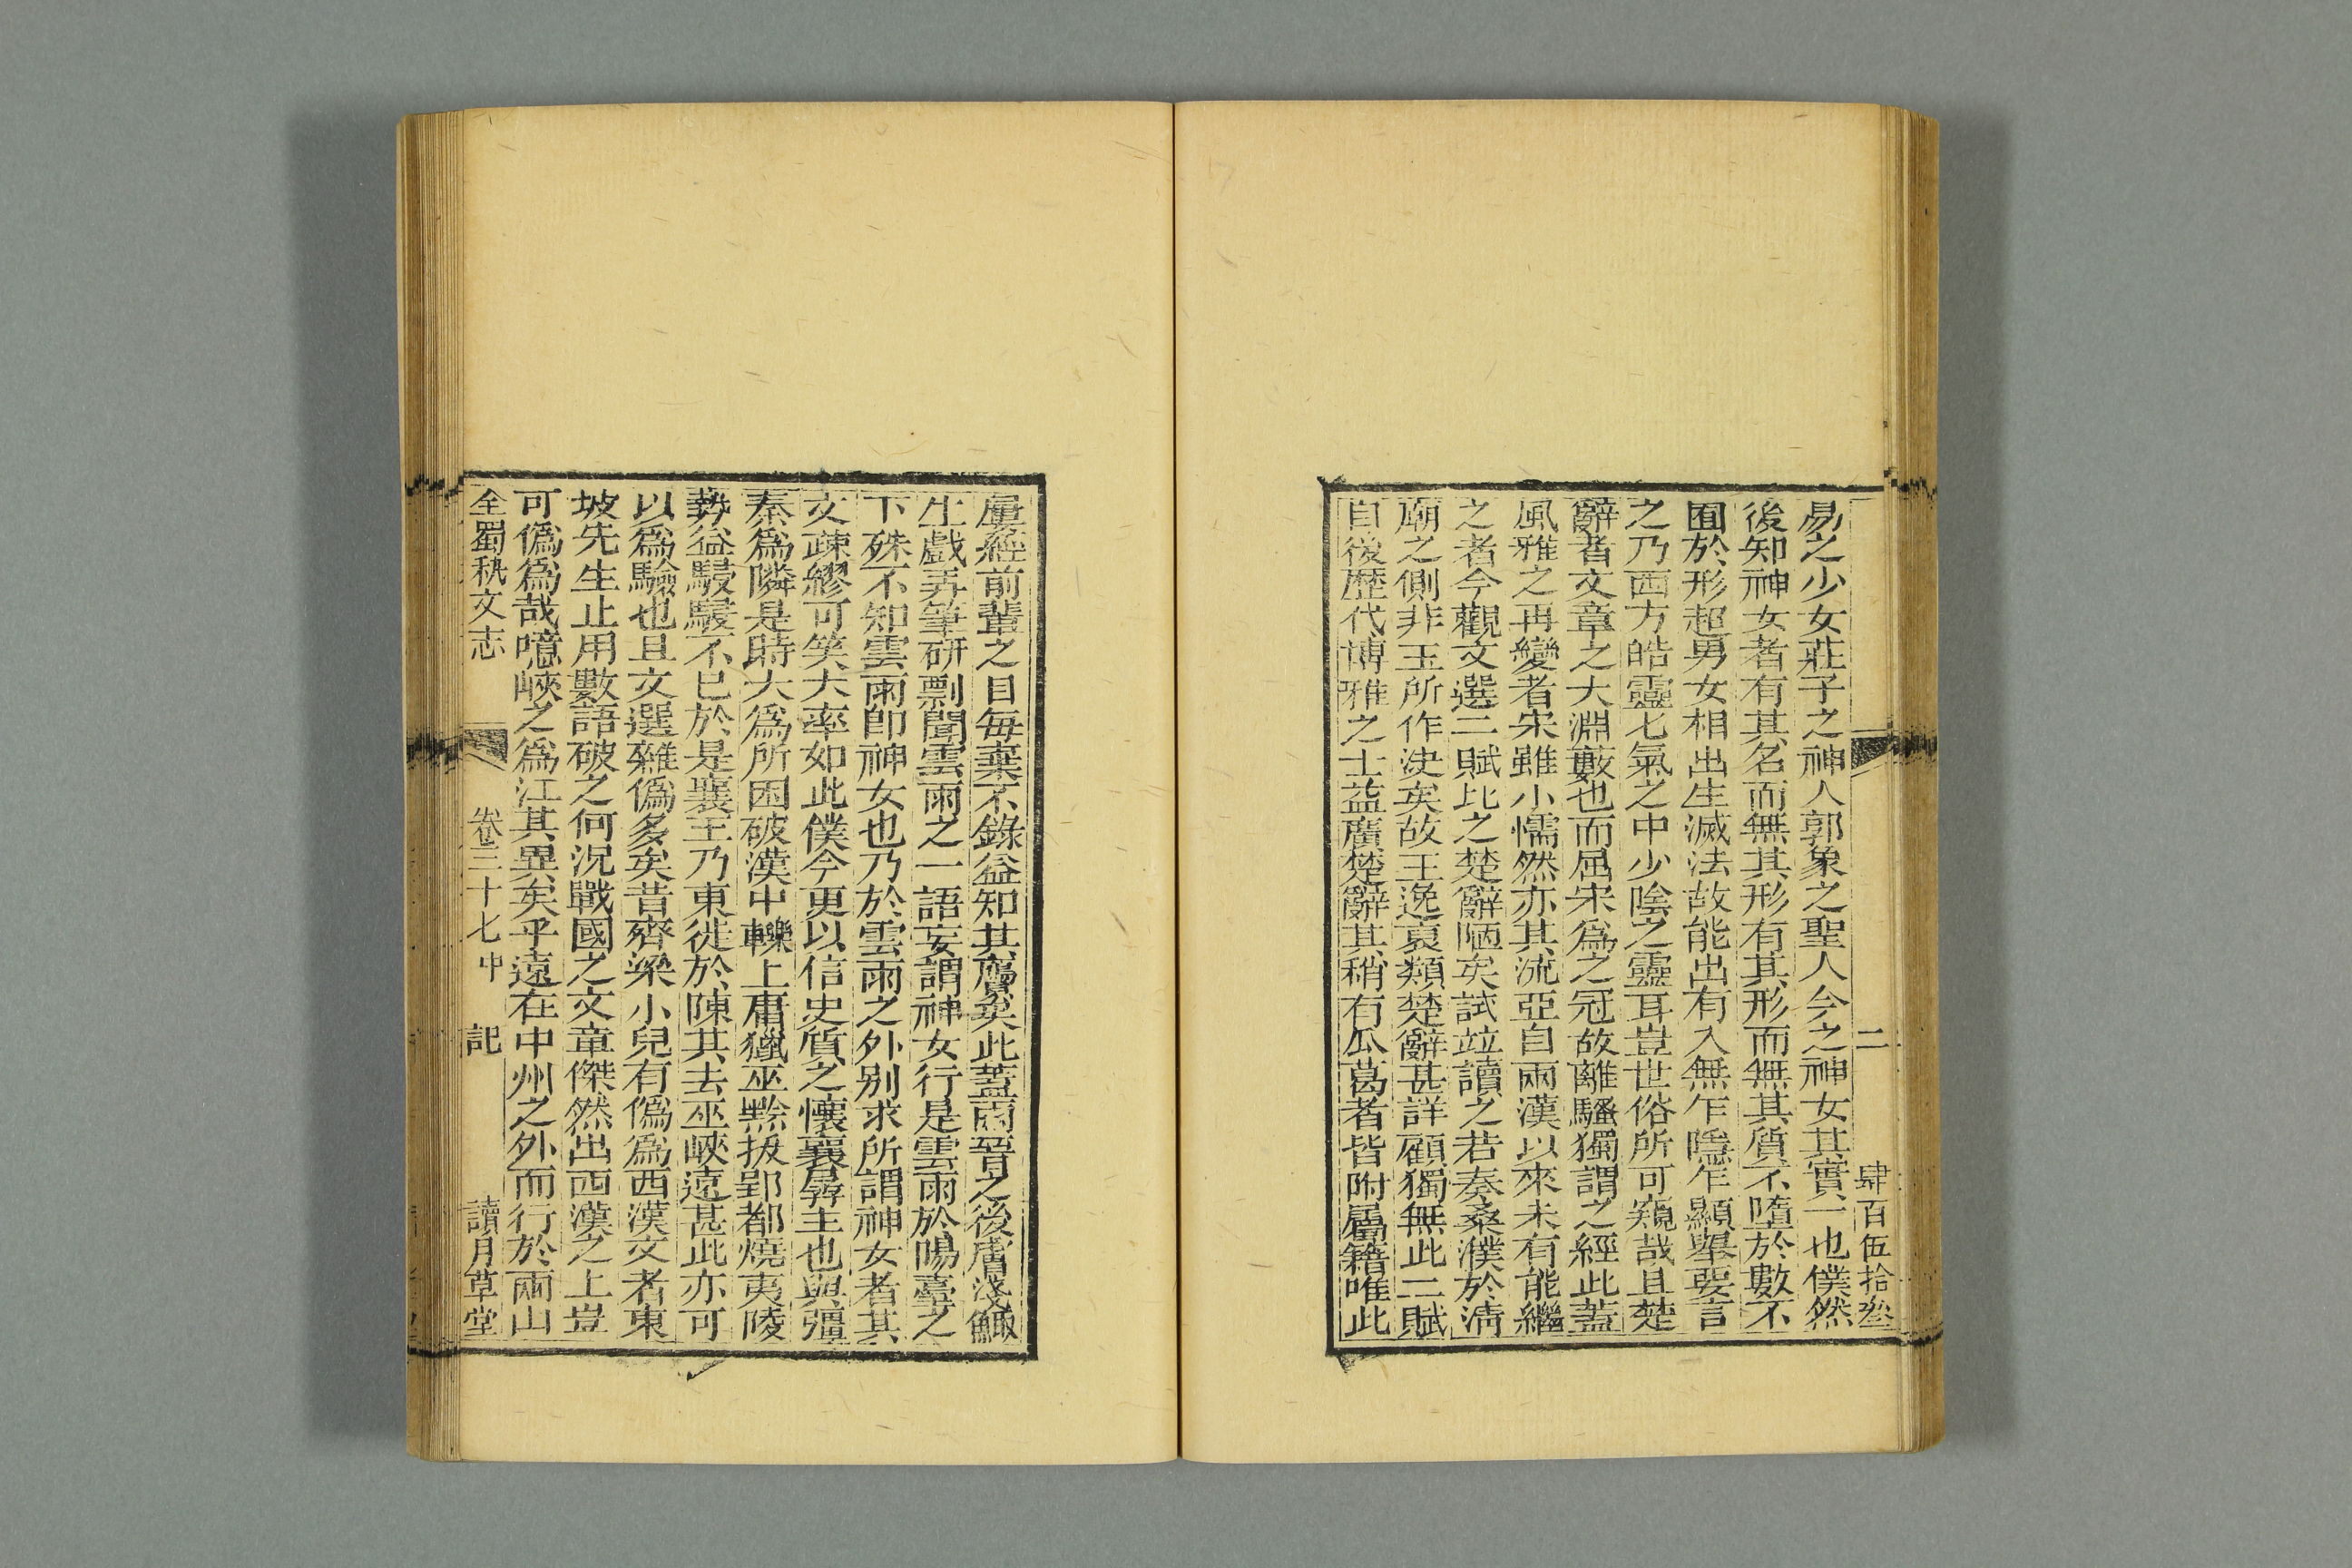 二 肆百伍拾叁
易之少女莊子之神人郭象之聖人今之神女其實一也僕然
後知神女者有其名而無其形有其形而無其質不墮於數不
囿於形超男女相出生滅法故能出有入無乍隱乍顯舉要言
之乃西方皓靈七氣之中少陰之靈耳豈世俗所可窺哉且楚
辭者文章之大淵藪也而屈宋為之冠故離騷獨謂之經此蓋
風雅之再變者宋雖小懦然亦其流亞自兩漢以來未有能繼
之者今觀文選二賦比之楚辭陋矣試竝讀之若奏桑濮於清
廟之側非玉所作決矣故王逸裒類楚辭甚詳顧獨無此二賦
自後歷代博雅之士益廣楚辭其稍有瓜葛者皆附屬籍唯此
屢經前輩之目每棄不錄益知其贗矣此蓋兩晉之後膚淺鯫
生戲弄筆研剽聞雲雨之一語妄謂神女行是雲雨於陽臺之
下殊不知雲雨即神女也乃於雲雨之外別求所謂神女者其
文疎繆可笑大率如此僕今更以信史質之懷襄孱主也與彊
秦為隣是時大為所困破漢中轢上庸獵巫黔拔郢都燒夷陵
勢益駸駸不已於是襄王乃東徙於陳其去巫峽遠甚此亦可
以為驗也且文選雜偽多矣昔齊梁小兒有偽為西漢文者東
坡先生止用數語破之何況戰國之文章傑然出西漢之上豈
可偽為哉噫峽之為江其異矣乎遠在中州之外而行於兩山
全蜀秇文志 卷三十七中 記 讀月草堂